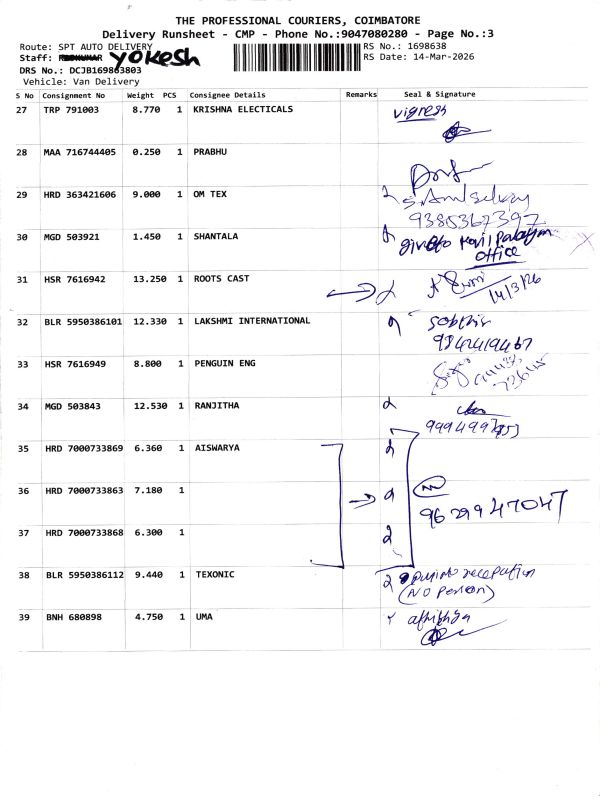 THE PROFESSIONAL COURIERS, COIMBATORE
Delivery Runsheet - CMP - Phone No.:9047080280 - Page No.:3
Route: SPT AUTO DELIVERY
RS No.: 1698638
Staff: YOKESH
RS Date: 14-Mar-2026
DRS No.: DCJB169863803
Vehicle: Van Delivery
S No Consignment No Weight PCS Consignee Details Remarks Seal & Signature
27 TRP 791003 8.770 1 KRISHNA ELECTICALS vignesh
28 MAA 716744405 0.250 1 PRABHU
29 HRD 363421606 9.000 1 OM TEX
9385367397
30 MGD 503921 1.450 1 SHANTALA
office
31 HSR 7616942 13.250 1 ROOTS CAST
14/3/26
32 BLR 5950386101 12.330 1 LAKSHMI INTERNATIONAL
33 HSR 7616949 8.800 1 PENGUIN ENG
34 MGD 503843 12.530 1 RANJITHA
35 HRD 7000733869 6.360 1 AISWARYA
36 HRD 7000733863 7.180 1
9629947047
37 HRD 7000733868 6.300 1
38 BLR 5950386112 9.440 1 TEXONIC
(NO Person)
39 BNH 680898 4.750 1 UMA